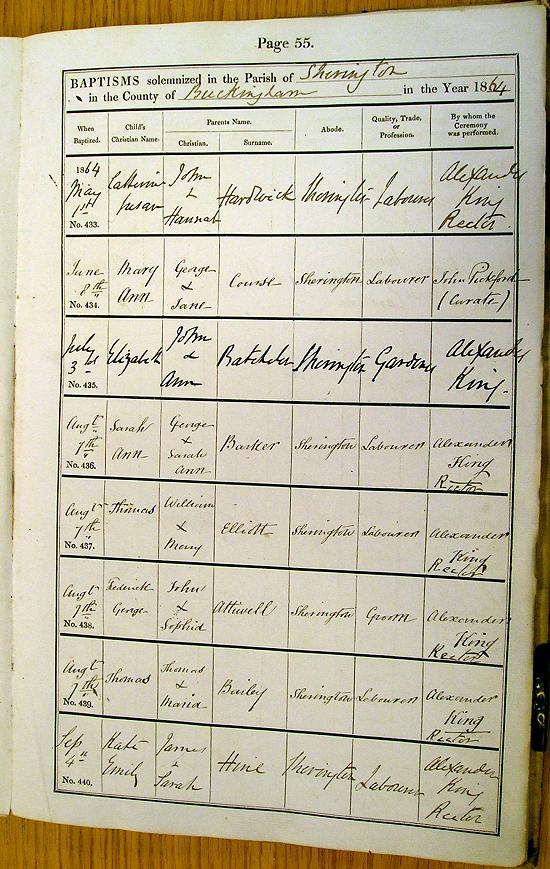 Page 55.
BAPTISMS solemnized in the Parish of Sherington
in the County of Buckingham in the Year 1864
When Baptized. Child's Christian Name. Parents Name. Christian. Surname. Abode. Quality, Trade, or Profession. By whom the Ceremony was performed.
1864 May 1st No. 433. Catherine Susan John & Hannah Hardwick Sherington Labourer Alexander King Rector
June 8th No. 434. Mary Ann George & Jane Course Sherington Labourer John Pickford (Curate)
July 3rd No. 435. Elizabeth John & Ann Batchelor Sherington Gardener Alexander King.
Augt 7th No. 436. Sarah Ann George & Sarah Ann Barker Sherington Labourer Alexander King Rector
Augt 7th No. 437. Thomas William & Mary Elliott Sherington Labourer Alexander King Rector
Augt 7th No. 438. Frederick George John & Sophia Attiwell Sherington Groom Alexander King Rector
Augt 7th No. 439. Thomas Thomas & Maria Bailey Sherington Labourer Alexander King Rector
Sep 4th No. 440. Kate Emily James & Sarah Hine Sherington Labourer Alexander King Rector